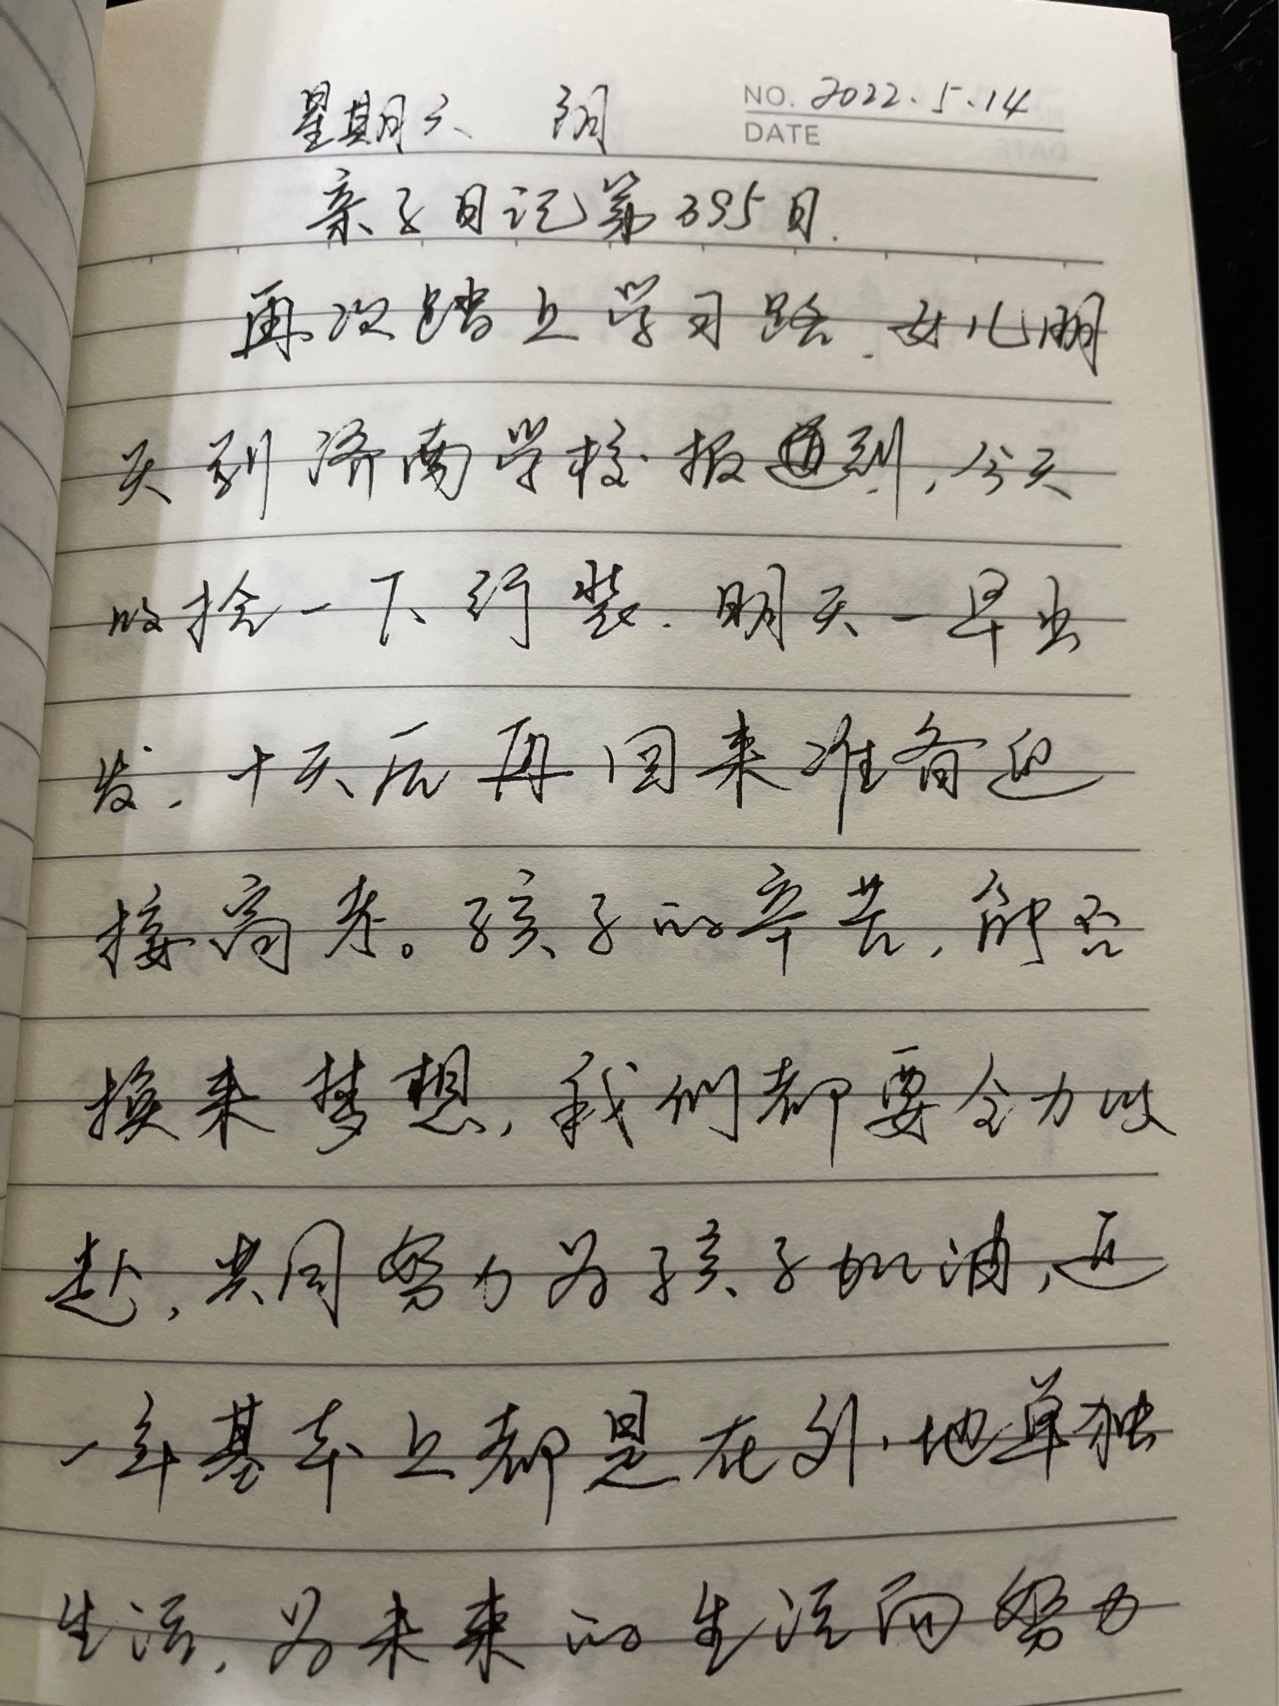 星期六 阴 NO. 2022.5.14
DATE
亲子日记第395日.
再次踏上学习路.女儿明
天到济南学校报到,今天
收拾一下行装.明天一早出
发,十天后再回来准备迎
接高考。孩子的辛苦,能否
换来梦想,我们都要全力以
赴,共同努力为孩子加油,近
一年基本上都是在外地单独
生活,为未来的生活而努力